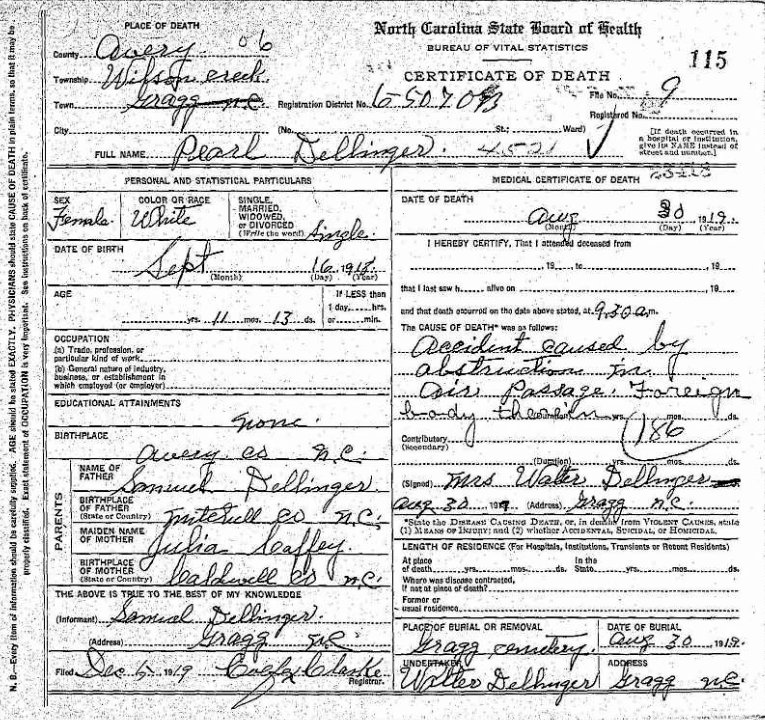 North Carolina State Board of Health
BUREAU OF VITAL STATISTICS
CERTIFICATE OF DEATH
115
PLACE OF DEATH
County Avery 06
Township Wilson creek
Town Gragg n.c. Registration District No. File No. 9
Registered No.
City (No. St.; Ward)
[If death occurred in a hospital or institution, give its NAME instead of street and number.]
FULL NAME Pearl Dellinger.
PERSONAL AND STATISTICAL PARTICULARS
SEX
Female
COLOR OR RACE
White
SINGLE, MARRIED, WIDOWED, or DIVORCED (Write the word) Single.
DATE OF BIRTH
Sept 16 1918
(Month) (Day) (Year)
AGE
yrs. 11 mos. 13 ds.
If LESS than 1 day, hrs. or min.
OCCUPATION
(a) Trade, profession, or particular kind of work
(b) General nature of industry, business, or establishment in which employed (or employer)
EDUCATIONAL ATTAINMENTS
none.
BIRTHPLACE
Avery co n.c.
PARENTS
NAME OF FATHER
Samuel Dellinger
BIRTHPLACE OF FATHER (State or Country)
Mitchell co n.c.
MAIDEN NAME OF MOTHER
Julia Caffey.
BIRTHPLACE OF MOTHER (State or Country)
Caldwell co n.c.
THE ABOVE IS TRUE TO THE BEST OF MY KNOWLEDGE
(Informant) Samuel Dellinger.
(Address) Gragg n.c.
Filed Dec 5 1919 Clarke
Registrar.
MEDICAL CERTIFICATE OF DEATH
DATE OF DEATH
Aug 30 1919.
(Month) (Day) (Year)
I HEREBY CERTIFY, That I attended deceased from
, 19 , to , 19
that I last saw h alive on , 19
and that death occurred on the date above stated, at 9.30 a.m.
The CAUSE OF DEATH* was as follows:
Accident caused by
abstruction in.
air passage. Foreign
body therein yrs. mos. ds.
Contributory (Secondary) 186
(Duration) yrs. mos. ds.
(Signed) Mrs Walter Dellinger
Aug 30 1919 (Address) Gragg n.c.
*State the DISEASE CAUSING DEATH, or, in deaths from VIOLENT CAUSES, state
(1) MEANS OF INJURY; and (2) whether ACCIDENTAL, SUICIDAL, OR HOMICIDAL.
LENGTH OF RESIDENCE (For Hospitals, Institutions, Transients or Recent Residents)
At place of death yrs. mos. ds. In the State yrs. mos. ds.
Where was disease contracted, if not at place of death?
Former or usual residence
PLACE OF BURIAL OR REMOVAL
Gragg cemetery.
DATE OF BURIAL
Aug 30 1919.
UNDERTAKER
Walter Dellinger
ADDRESS
Gragg n.c.
N. B.—Every item of information should be carefully supplied. AGE should be stated EXACTLY. PHYSICIANS should state CAUSE OF DEATH in plain terms, so that it may be
properly classified. Exact statement of OCCUPATION is very important. See instructions on back of certificate.